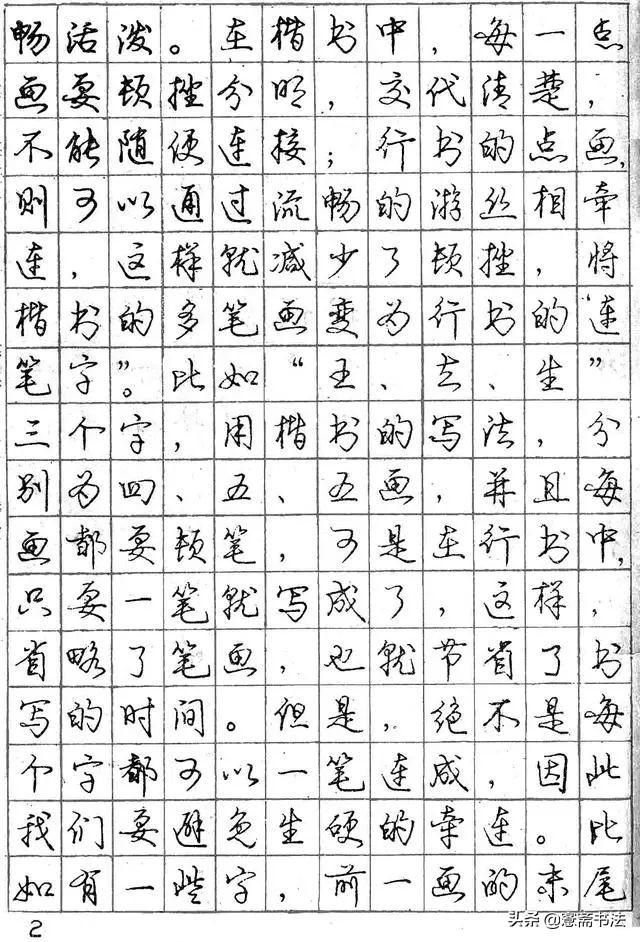 畅活泼。在楷书中，每一点
画要顿挫分明，交代清楚，
不能随便连接；行书的点画，
则可以通过流畅的游丝相牵
连，这样就减少了顿挫，将
楷书的多笔画变为行书的“连
笔字”。比如“王、去、生”
三个字，用楷书的写法，分
别为四、五、五画，并且每
画都要顿笔，可是在行书中，
只要一笔就写成了，这样，
省略了笔画，也就节省了书
写的时间。但是，绝不是每
个字都可以一笔连成，因此
我们要避免生硬的牵连。比
如有一些字，前一画的末尾
2
头条@慧斋书法